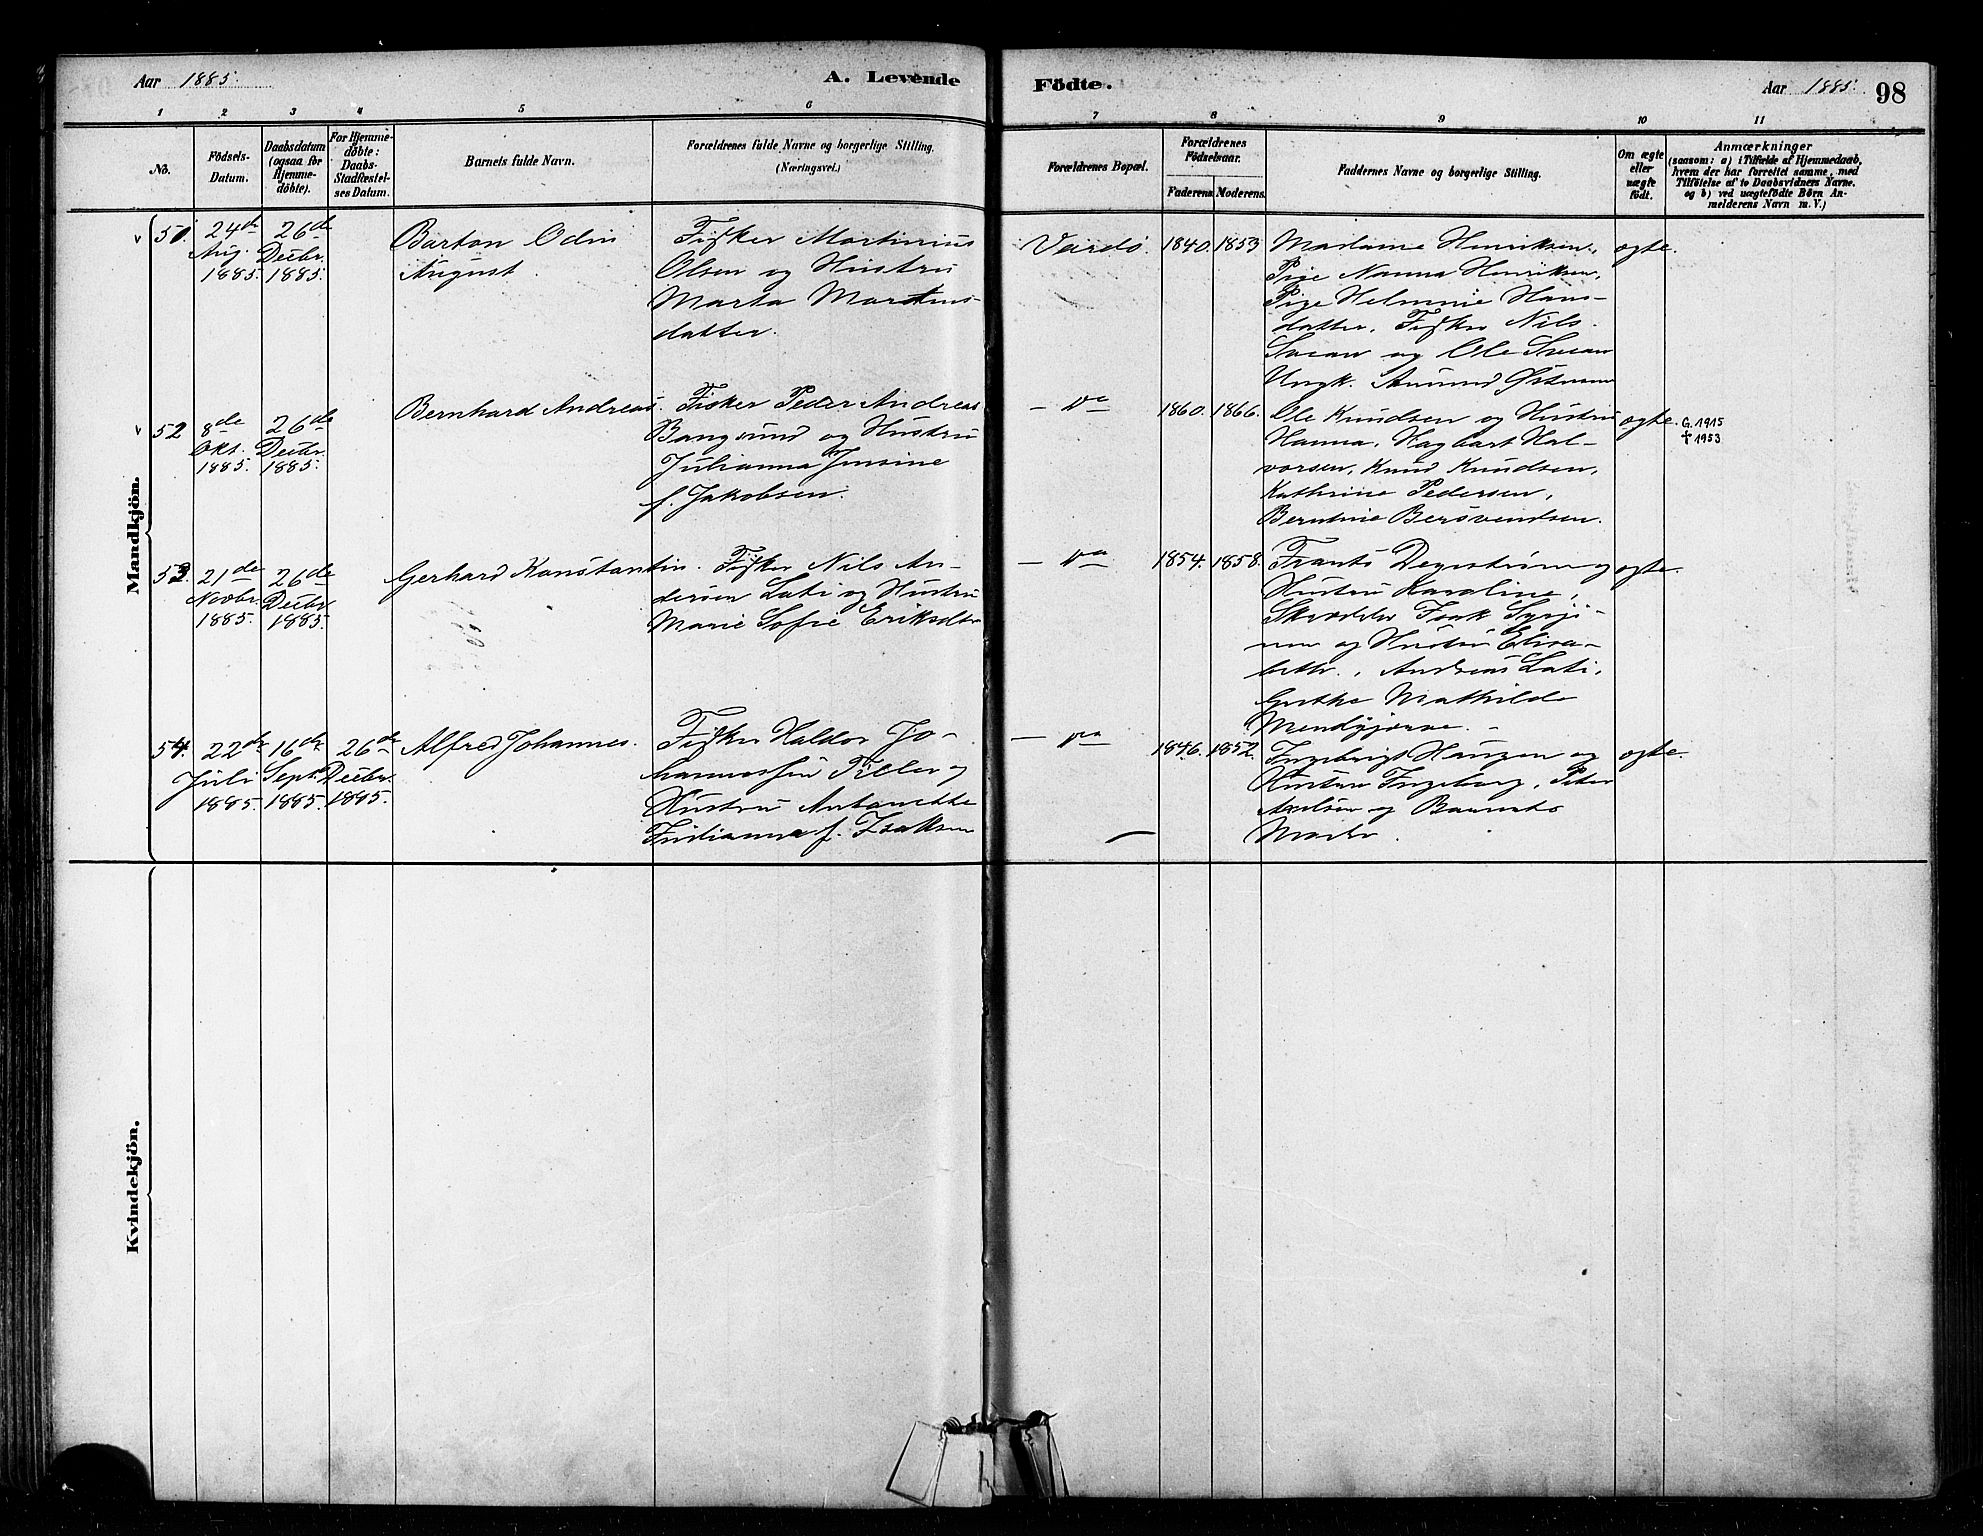 Aar 1885.
A. Levende
Födte.
Aar 1885.
98
1 2 3 4 5 6 7 8 9 10 11
No.
Födsels-Datum.
Daabsdatum (ogsaa för Hjemme-döbte).
For Hjemme-döbte: Daabs-Stadfæstel-ses Datum.
Barnets fulde Navn.
Forældrenes fulde Navne og borgerlige Stilling.
(Næringsvei.)
Forældrenes Bopæl.
Forældrenes Födselsaar.
Faderens. Moderens.
Faddernes Navne og borgerlige Stilling.
Om ægte eller uægte födt.
Anmærkninger
(saasom: a) i Tilfælde af Hjemmedaab,
hvem der har forrettet samme, med
Tilföielse af to Daabsvidners Navne.
og b) ved uægtefödte Börn An-
melderens Navn m. V.)
Mandkjön.
v 51. 24de Aug. 1885.
26de Decbr. 1885.
Barton Odin
August
Fisker Martinius
Olsen og Hustru
Marta Martins-
datter.
Vardö.
1840. 1853
Madame Henriksen,
Pige Nanna Henriksen,
Pige Helmine Hans-
datter, Fisker Nils
og Ole
Ungk.
ægte.
v 52 8de Okt. 1885.
26de Decbr. 1885.
Bernhard Andreas.
Fisker Peder Andreas
Bangsund og Hustru
Julianna Jensine
f. Jakobsen.
— do
1860. 1866.
Ole Knudsen og Hustru
Hanna, Hagbart Hal-
vorsen, Knud Knudsen,
Kathrine Pedersen,
Berntine Bersvendsen.
ægte.
G. 1915
† 1953
53. 21de Novbr. 1885.
26de Decbr. 1885.
Gerhard Konstantin.
Fisker Nils An-
dersen Lati og Hustru
Marie Sofie Eriksdtr
— do
1854. 1858.
Frants og
Hustru Karoline,
Skrædder Isak
og Hustru Elisa-
beth, Andreas Lati,
Grethe Mathilde
ægte.
54. 22de Juli 1885.
16de Sept. 1885.
26de Decbr. 1885.
Alfred Johannes.
Fisker Haldor Jo-
hannessen Tiller og
Hustru Antonette
Julianna f. Isaksen
— do
1846. 1852.
Ingebrigt Haugen og
Hustru Ingeborg, Peter
Axelsen og
ægte.
Kvindekjön.